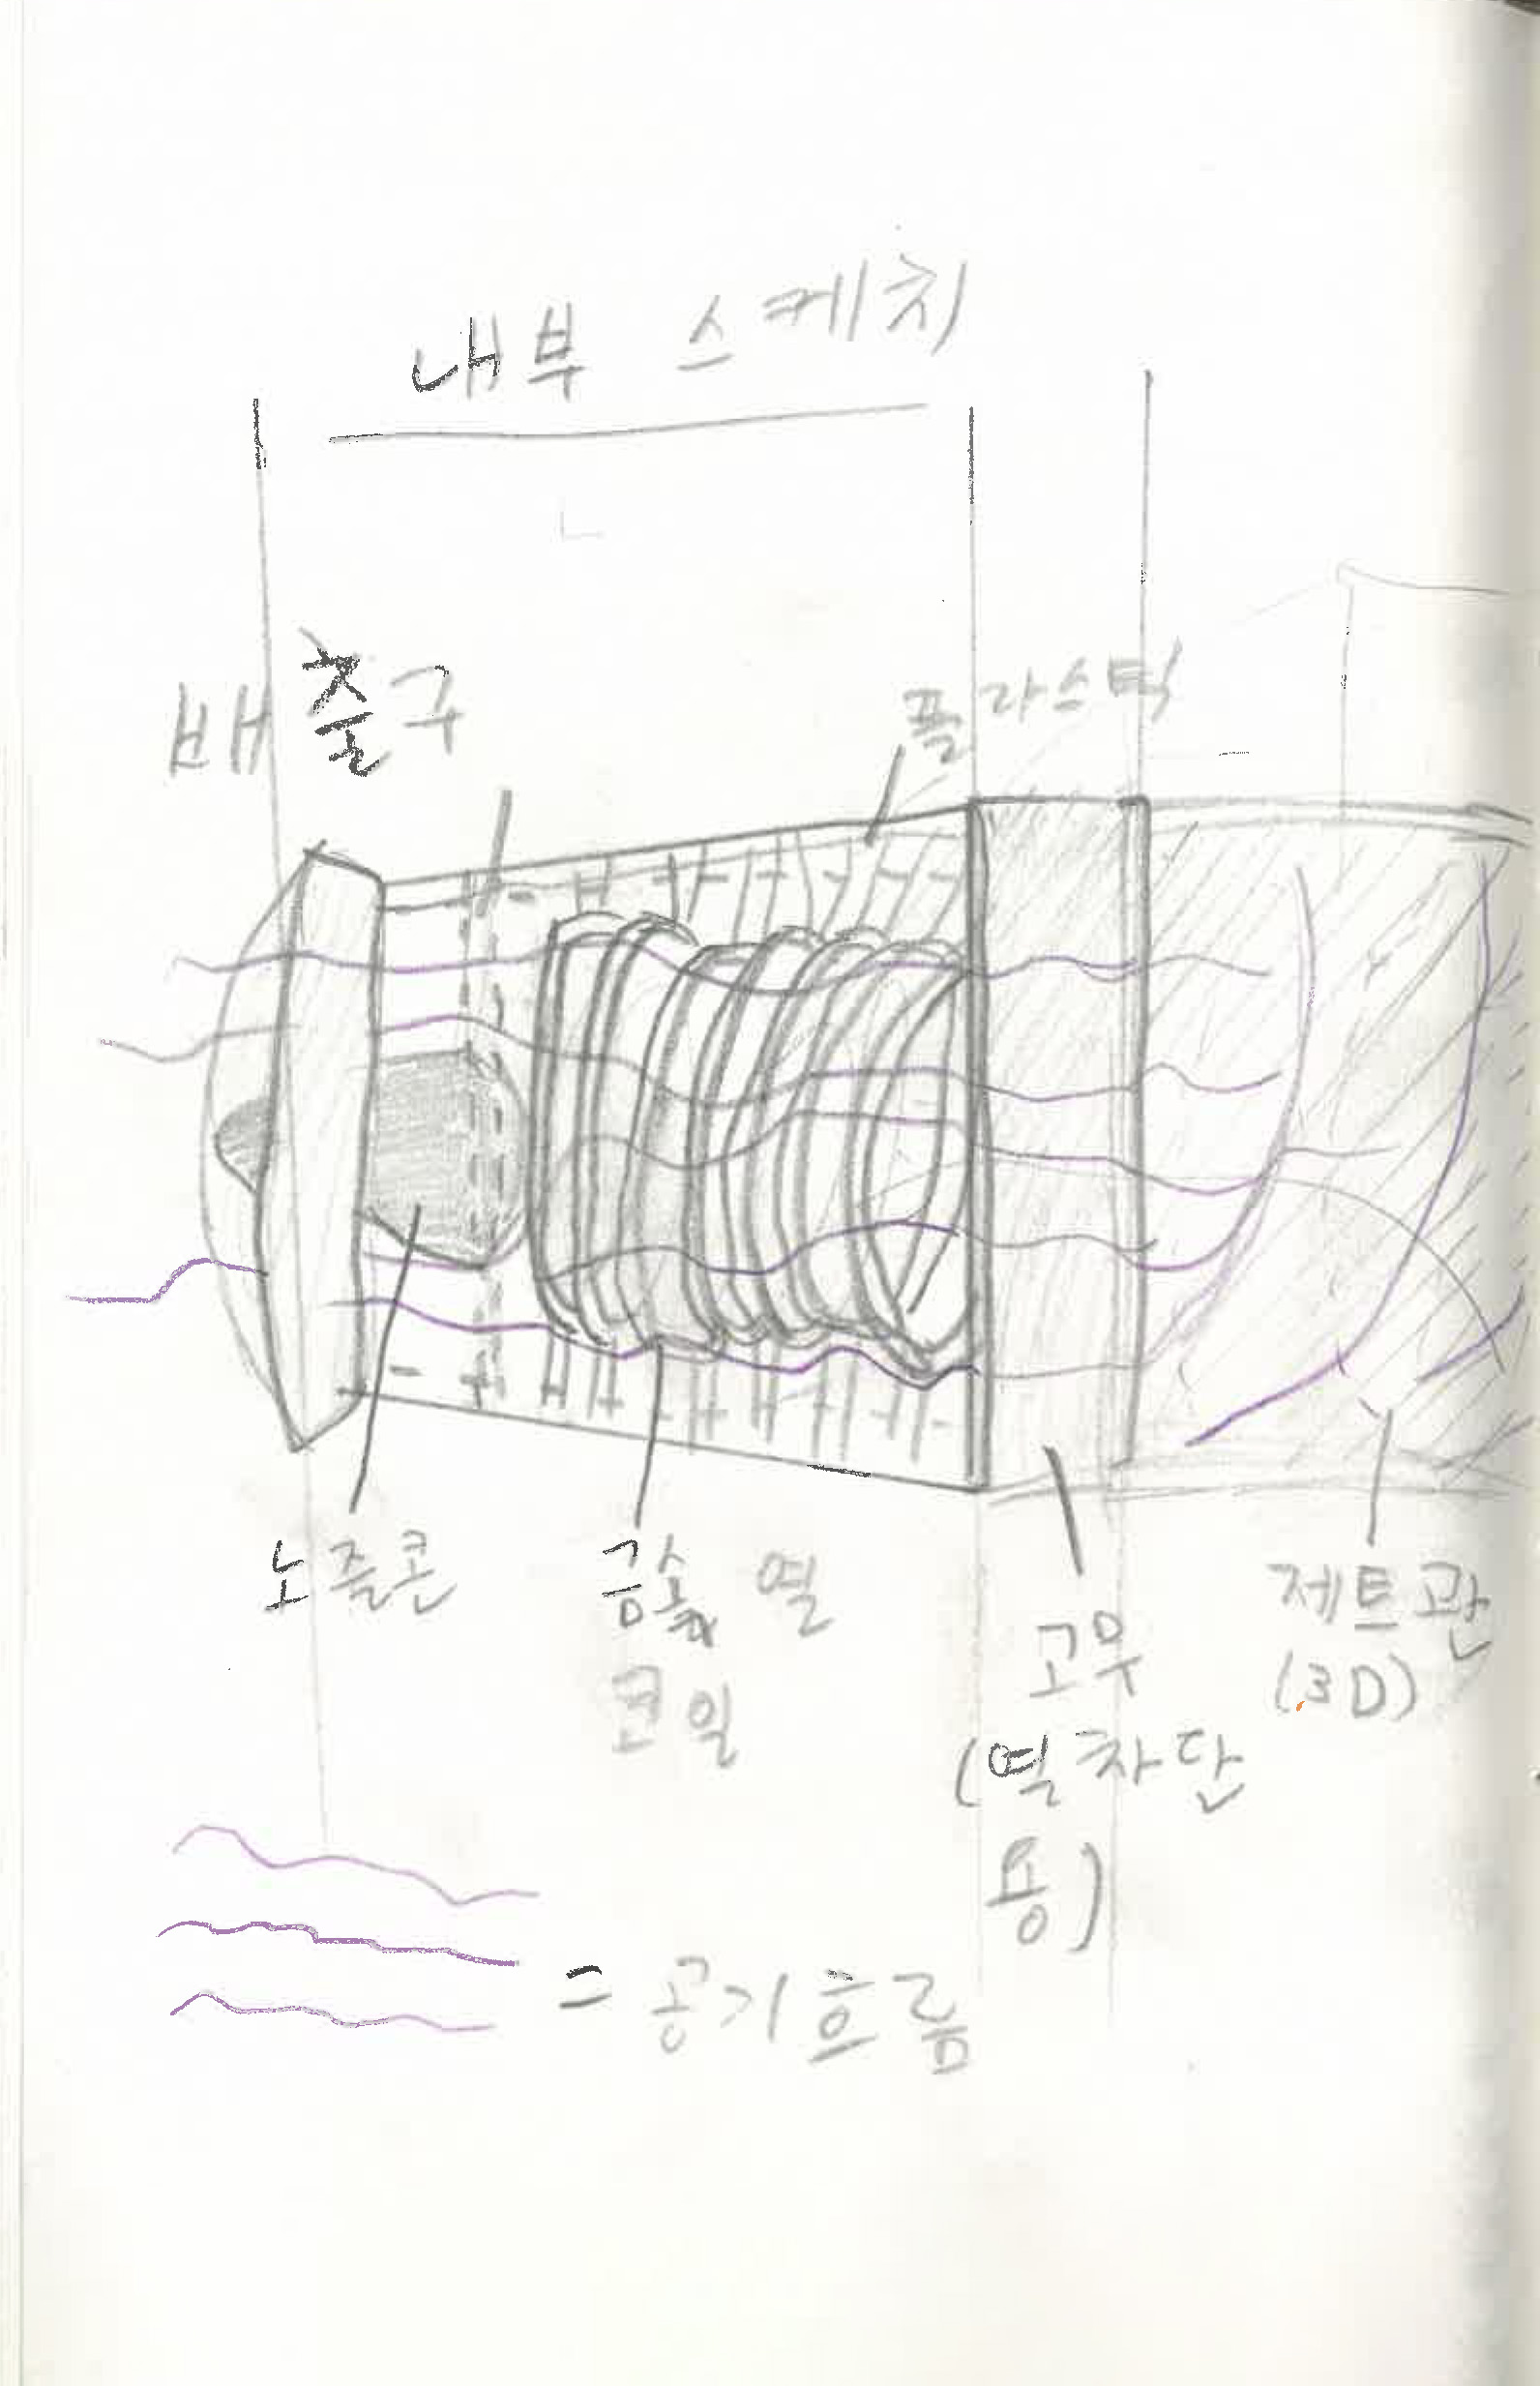 내부 스케치
배출구
플라스틱
노즐콘
금속 열
코일
고무
(열차단
용)
제트관
(3D)
= 공기흐름